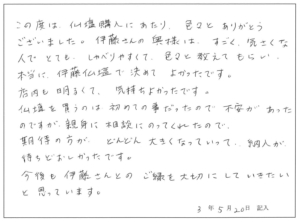 この度は、仏壇購入にあたり、色々とありがとう
ございました。伊藤さんの奥様は、すごく、気さくな
人でとても、しゃべりやすくて、色々と教えてもらい、
本当に、伊藤仏壇で決めてよかったです。
店内も明るくて、気持ちよかったです。
仏壇を買うのは初めての事だったので不安があった
のですが、親身に相談にのってくれたので、
期待の方が、どんどん大きくなっていって、納入が
待ちどおしかったです。
今後も伊藤さんとのご縁を大切にしていきたい
と思っています。
3年5月20日 記入